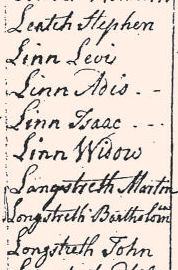 Leatch Stephen
Linn Levis
Linn Adis - -
Linn Isaac - - -
Linn Widow
Langstreth Martin
Longstreth Bartholom
Longstreth John